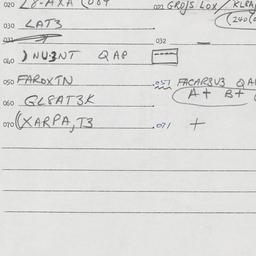 020 L8-AXA 
022 GROJS LOX/ 
030 LAT3
(240
031
032 —
040 ) NU3NT QAP
050 FAROXTN
051 FACARSUS QA
A+ B+
060 GL8AT3K
070 (XARPA, T3
071 +